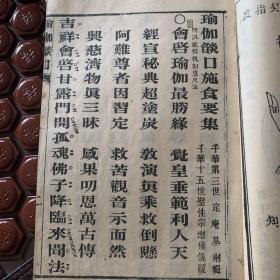 瑜伽燄口施食要集
千華第三世定庵基刪輯
千華十五世聖性宗增備儀觀
○會啓瑜伽最勝緣　覺皇垂範利人天
經宣秘典超塗炭　教演真乘救倒懸
阿難尊者因習定　救苦觀音示面然
興慈濟物真三昧　感果叨恩萬古傳
吉祥會啓甘露門開孤魂佛子降臨來聞法
瑜伽燄口